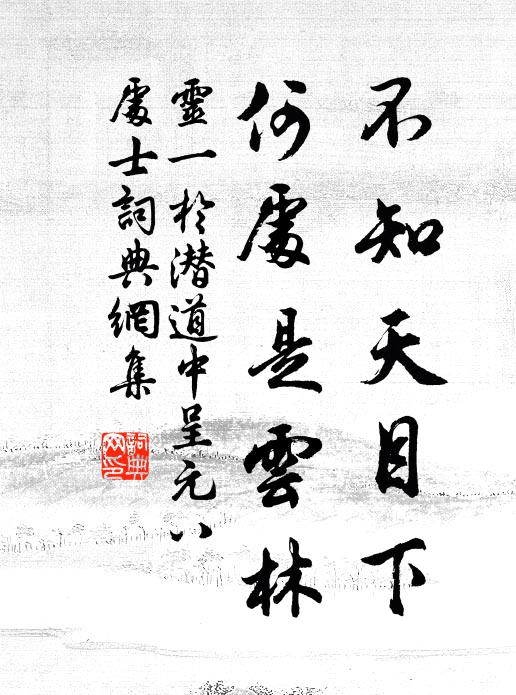 不知天目下
何處是雲林
靈一於潛道中呈元八
處士詞典網集
詞典網印